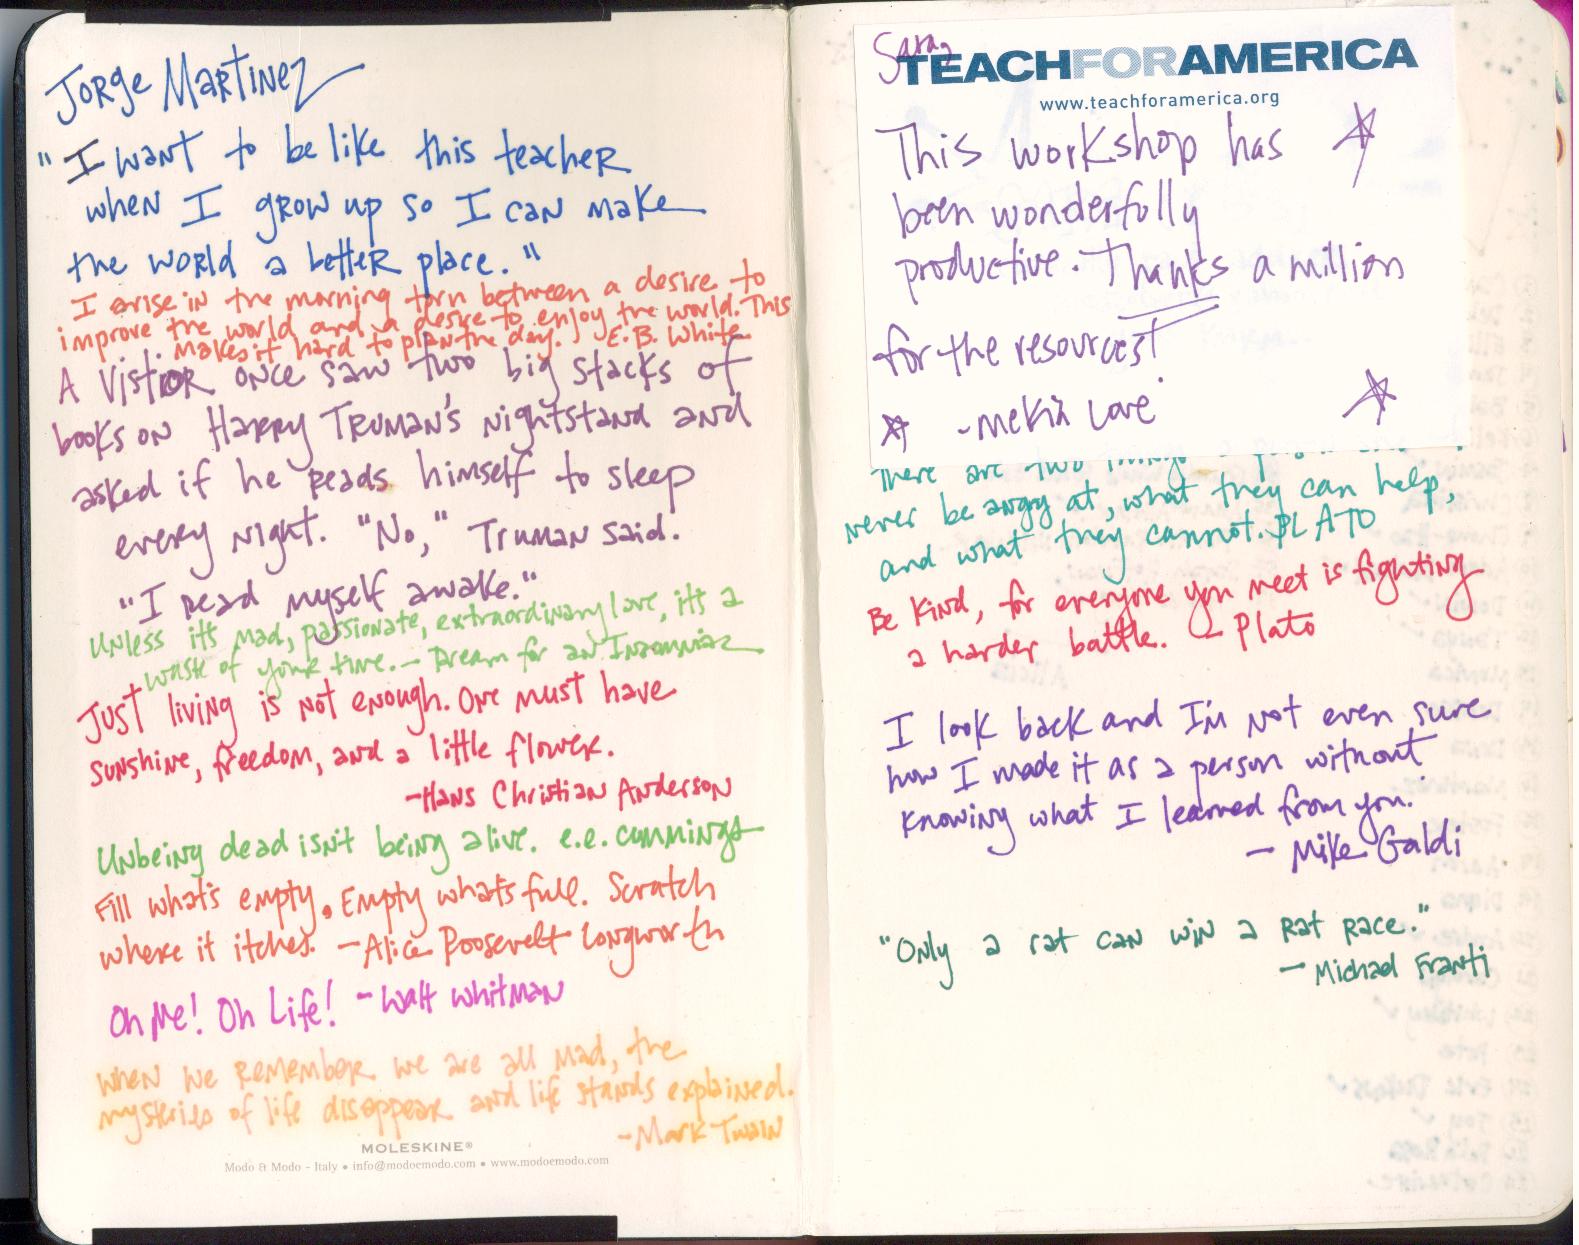 Jorge Martinez
"I want to be like this teacher
when I grow up so I can make
the world a better place."
I arise in the morning torn between a desire to
improve the world and a desire to enjoy the world. This
makes it hard to plan the day. E.B. White
A Vistior once saw two big stacks of
books on Harry Truman's nightstand and
asked if he reads himself to sleep
every night. "No," Truman said.
"I read myself awake."
Unless it's mad, passionate, extraordinary love, it's a
waste of your time. - Dream for an Insomniac
Just living is not enough. One must have
sunshine, freedom, and a little flower.
-Hans Christian Anderson
Unbeing dead isn't being alive. e.e. cummings
Fill what's empty. Empty what's full. Scratch
where it itches. -Alice Roosevelt Longworth
Oh Me! Oh Life! -Walt Whitman
When we remember we are all mad, the
mysteries of life disappear and life stands explained.
-Mark Twain
MOLESKINE®
Modo & Modo - Italy • info@modoemodo.com • www.modoemodo.com
Sara,
TEACHFORAMERICA
www.teachforamerica.org
This workshop has
been wonderfully
productive. Thanks a million
for the resources!
-Mekia Love
There are two things
never be angry at, what they can help,
and what they cannot. PLATO
Be kind, for everyone you meet is fighting
a harder battle. - Plato
I look back and I'm not even sure
how I made it as a person without
knowing what I learned from you.
- Mike Galdi
"Only a rat can win a rat race."
- Michael Franti